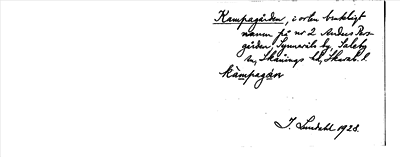 Kampagården, i orten brukligt
namn på nr 2 Anders Pers-
gården, Synnerils by, Saleby
sn, Skånings hd, Skarab. l.
kàmpagán
I. Lundahl 1928.